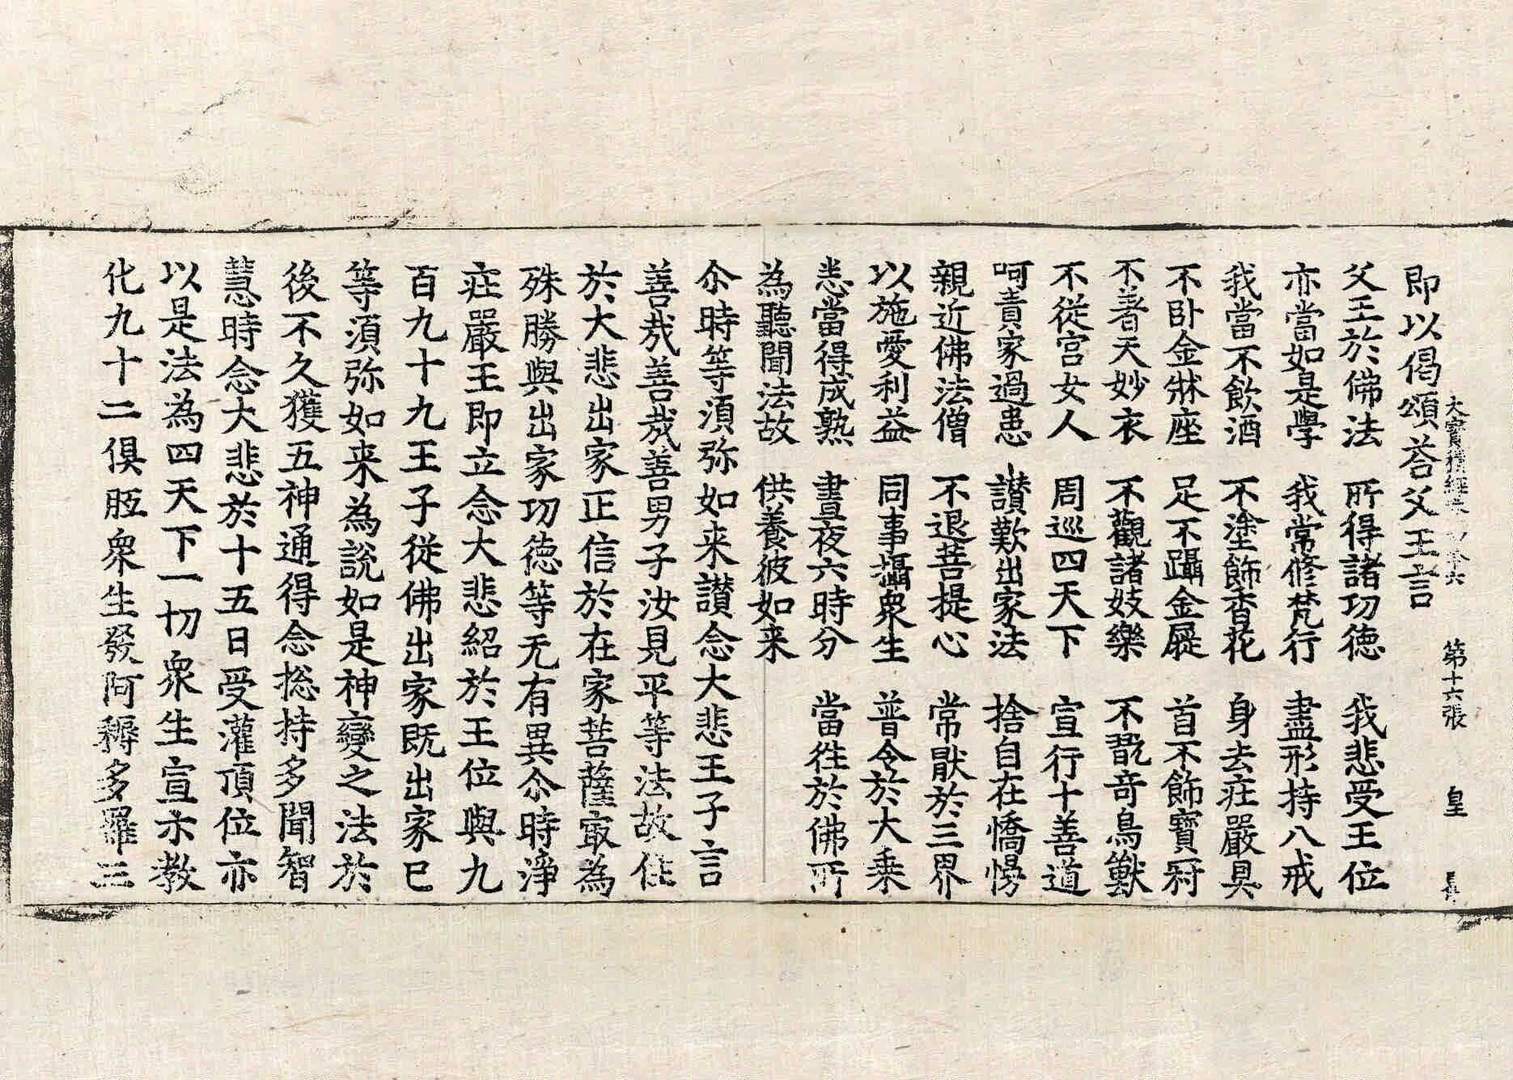 即以偈頌荅父王言
父王於佛法　所得諸功德　我悲受王位
亦當如是學　我常修梵行　盡形持八戒
我當不飲酒　不塗飾香花　身去莊嚴具
不卧金牀座　足不躡金屣　首不飾寶冠
不著天妙衣　不觀諸妓樂　不翫奇鳥獸
不從宮女人　周巡四天下　宣行十善道
呵責家過患　讃歎出家法　捨自在憍慢
親近佛法僧　不退菩提心　常猒於三界
以施愛利益　同事攝衆生　普令於大乘
悉當得成熟　晝夜六時分　當往於佛所
為聽聞法故　供養彼如来
尒時等湏弥如来讃念大悲王子言
善㢤善㢤善男子汝見平等法故住
於大悲出家正信於在家菩薩㝡為
殊勝與出家功德等无有異尒時淨
莊嚴王即立念大悲紹於王位與九
百九十九王子從佛出家既出家已
等湏弥如来為說如是神變之法於
後不久獲五神通得念揔持多聞智
慧時念大悲於十五日受灌頂位亦
以是法為四天下一切衆生宣示教
化九十二俱胝衆生發阿耨多羅三
大寶積經 第十六張 皇